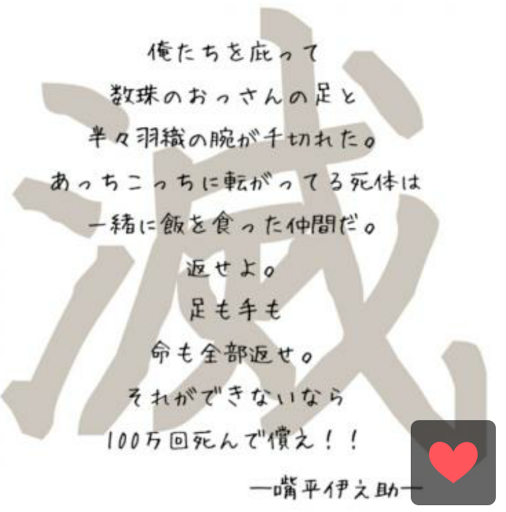 滅
俺たちを庇って
数珠のおっさんの足と
半々羽織の腕が千切れた。
あっちこっちに転がってる死体は
一緒に飯を食った仲間だ。
返せよ。
足も手も
命も全部返せ。
それができないなら
100万回死んで償え！！
—嘴平伊之助—